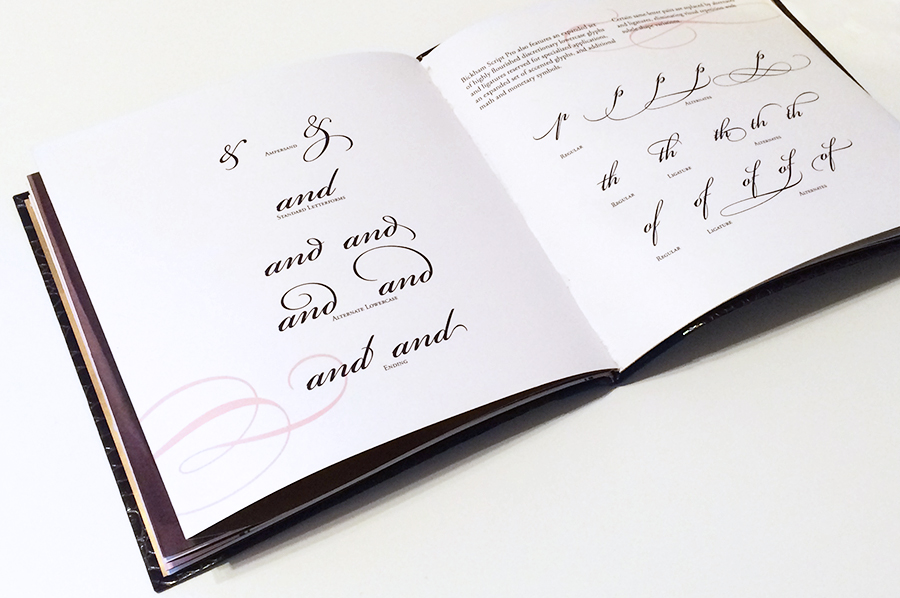 & &
Ampersand
and
Standard Letterforms
and and
and and
Alternate Lowercase
and and
Ending
Bickham Script Pro also features an expanded set
of highly flourished discretionary lowercase glyphs
and ligatures reserved for specialized applications,
an expanded set of accented glyphs, and additional
math and monetary symbols.
Certain same-letter pairs are replaced by alternates
and ligatures, eliminating visual repetition with
subtle shape variations.
p p p p p
Regular Alternates
th th th th th
Regular Ligature Alternates
of of of of of
Regular Ligature Alternates